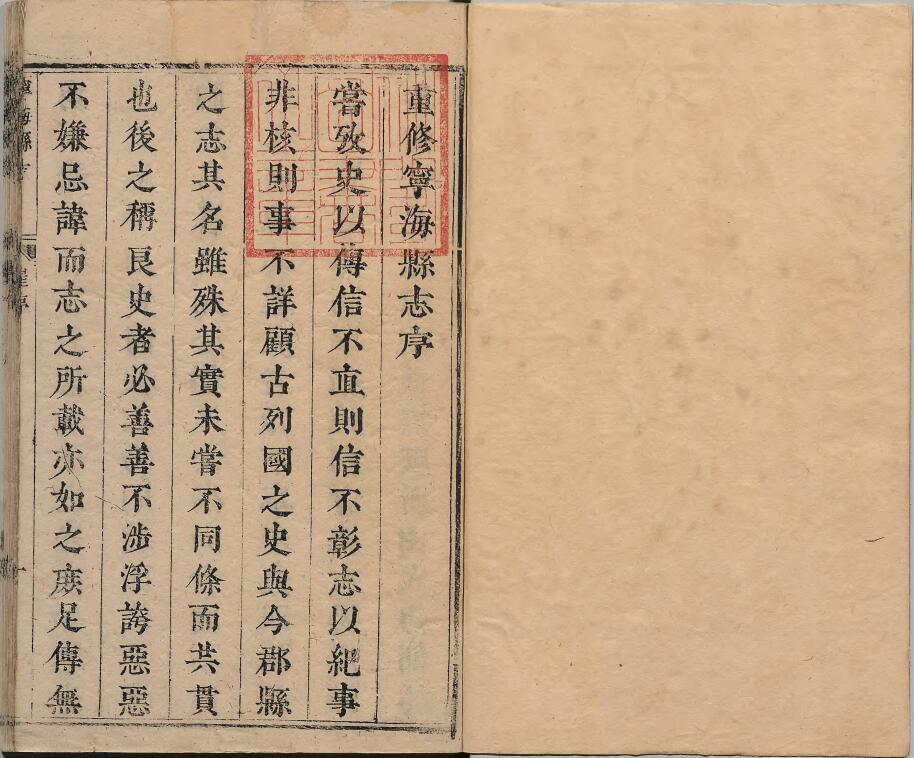 重修寧海縣志序
嘗攷史以傳信不直則信不彰志以紀事
非核則事不詳顧古列國之史與今郡縣
之志其名雖殊其實未嘗不同條而共貫
也後之稱良史者必善善不涉浮誇惡惡
不嫌忌諱而志之所載亦如之庶足傳無